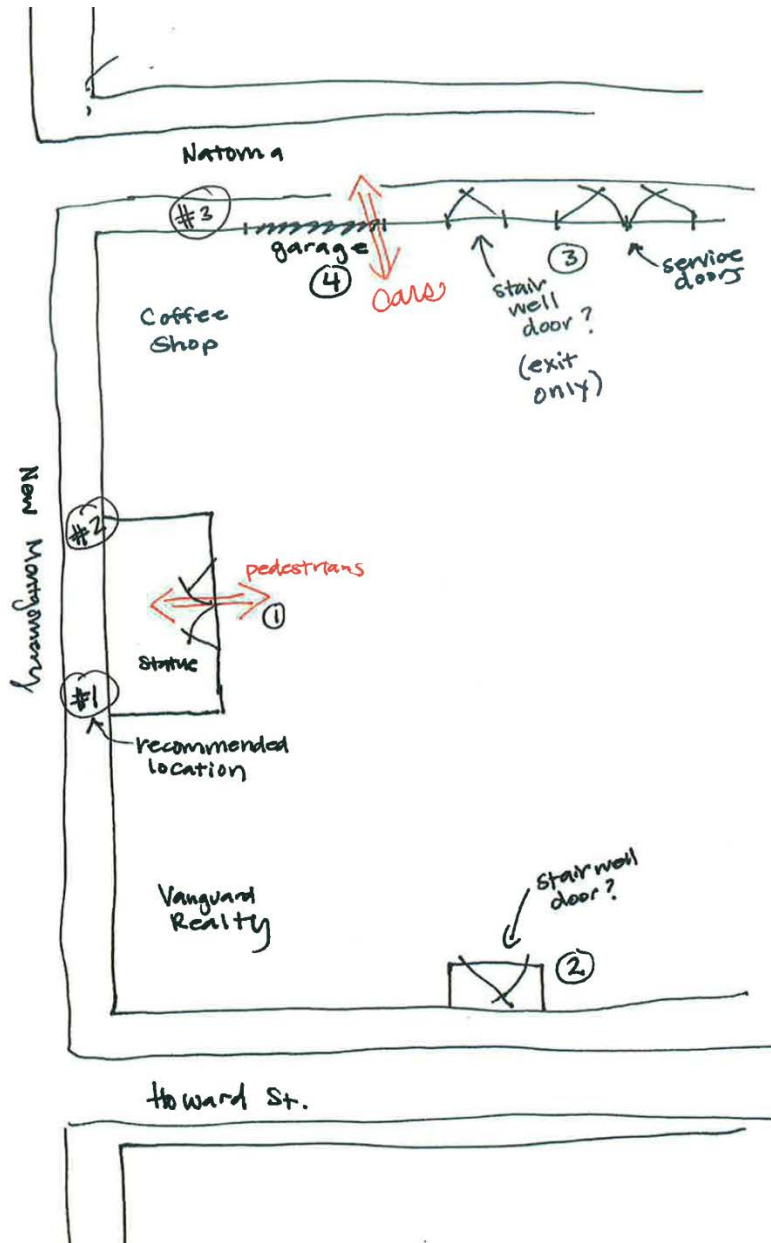 Natoma
#3
garage
④
cars
stair
well
door?
(exit
only)
③
service
doors
Coffee
Shop
New Montgomery
#2
pedestrians
①
Statue
#1
recommended
location
Vanguard
Realty
stairwell
door?
②
Howard St.